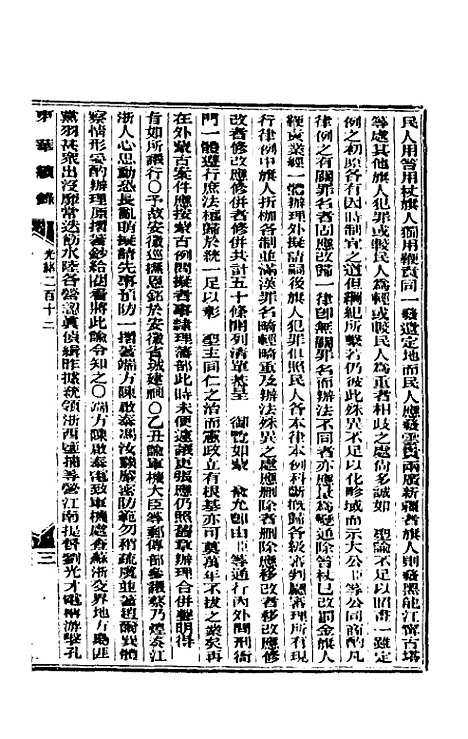 民人用笞用杖旗人獨用鞭責同一發遣定地而民人應發雲貴兩廣新疆者旗人則發黑龍江甯古塔
等處其他旗人犯罪或較民人為輕或較民人為重者相歧之處尚多誠如 聖諭不足以昭畫一雖定
例之初原各有因時制宜之道但綱紀所繫若仍彼此殊異不足以化畛域而示大公臣等公同商酌凡
律例之有關罪名者固應改歸一律即無關罪名而辦法不同者亦應量為變通除笞杖已改罰金旗人
鞭責業經一體辦理外擬請嗣後旗人犯罪俱照民人各本律本例科斷概歸各級審判廳審理所有現
行律例中旗人折枷各制並滿漢罪名畸輕畸重及辦法殊異之處應刪除者刪除應移改者移改應修
改者修改應修併者修併共計五十條開列清單恭呈 御覽如蒙 俞允即由臣等通行內外問刑衙
門一體遵行庶法權歸於統一足以彰 聖主同仁之治而憲政立有根基亦可奠萬年不拔之業矣再
在外蒙古案件應按蒙古例問擬者事隸理藩部此時未便遽議更張應仍照舊章辦理合併聲明得
旨如所議行○予故安徽巡撫恩銘於安徽省城建祠○乙丑諭軍機大臣等郵傳部參議蔡乃煌奏江
浙人心思動恐長亂萌擬請先事預防一摺著端方陳啟泰馮汝騤嚴密防範勿稍疏虞並著遴調異體
察情形妥酌辦理原摺著鈔給閱看將此諭令知之○端方陳啟泰電致軍機處查蘇浙交界地方梟匪
黨羽甚眾出沒靡常迭飭水陸各營認真偵緝昨據統領浙西巡捕等營江南提督劉光才電稱游擊孔
東華續錄 光緒二百十二 三